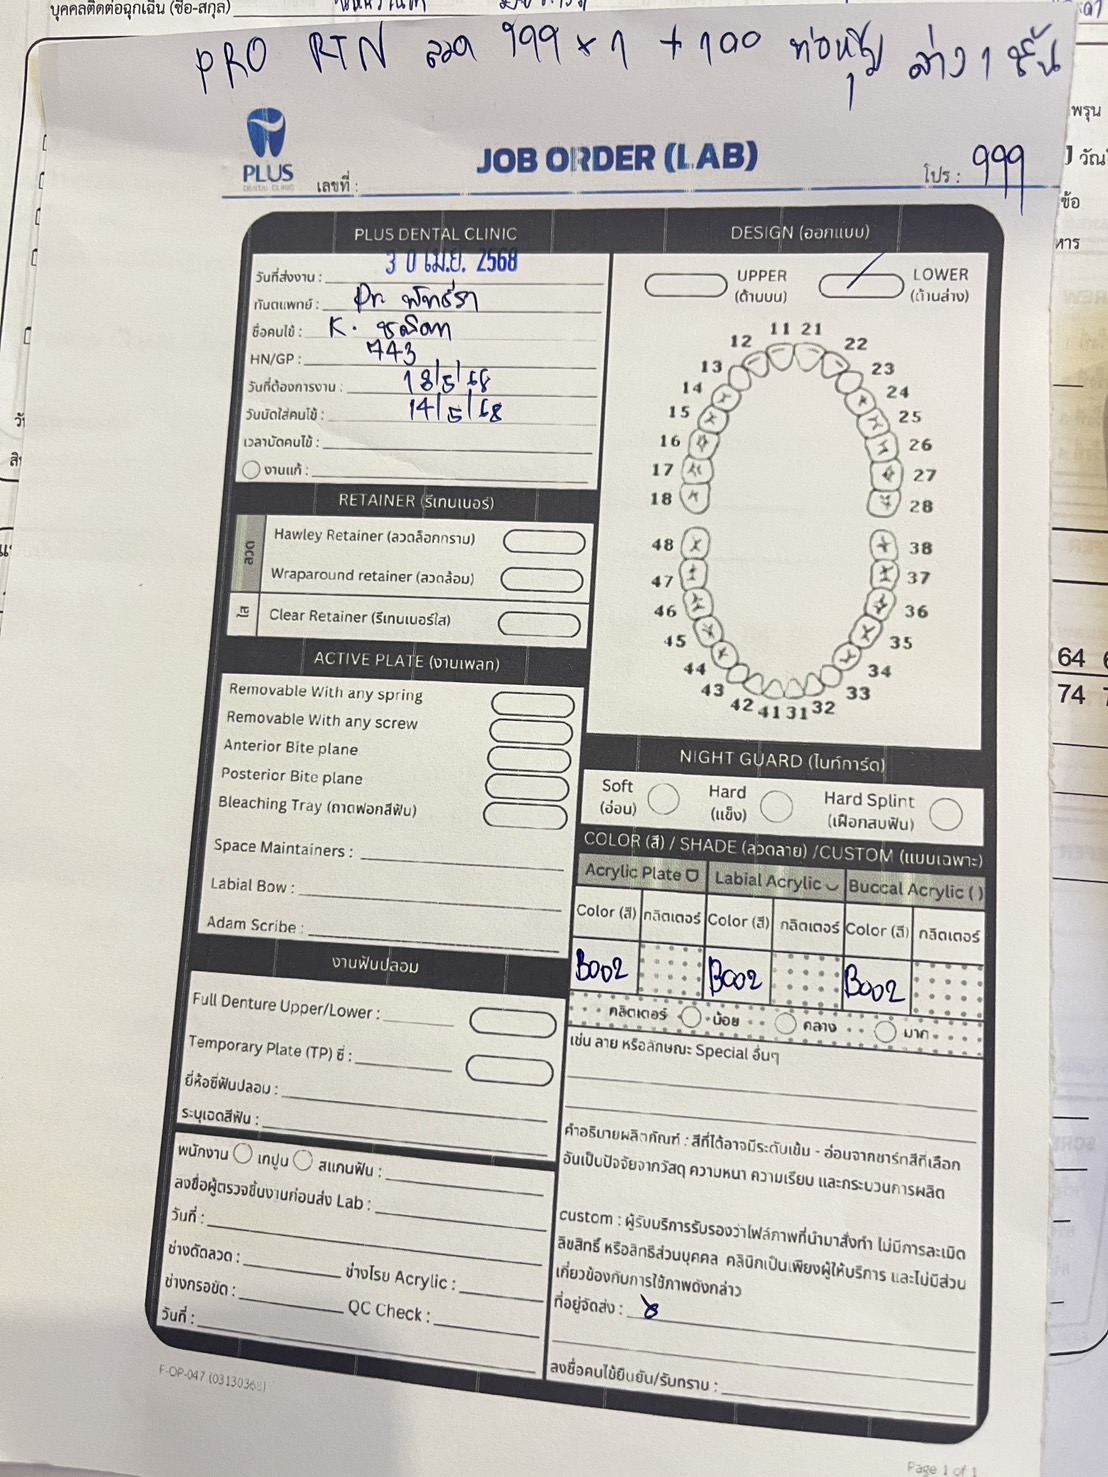 บุคคลติดต่อฉุกเฉิน (ชื่อ-สกุล)
PRO RTN ลวด 999 x 1 + 100 ท่อหุ้ม ล่าง 1 ชิ้น
PLUS
DENTAL CLINIC
เลขที่ :
JOB ORDER (LAB)
โปร : 999
PLUS DENTAL CLINIC
วันที่ส่งงาน : 30 เม.ย. 2568
ทันตแพทย์ : Dr. พัทธ์ธีรา
ชื่อคนไข้ : K.
HN/GP : 743
วันที่ต้องการงาน : 13/5/68
วันนัดใส่คนไข้ : 14/5/68
เวลานัดคนไข้ :
งานแก้ :
RETAINER (รีเทนเนอร์)
ลวด
Hawley Retainer (ลวดล็อกกราม)
Wraparound retainer (ลวดล้อม)
ใส
Clear Retainer (รีเทนเนอร์ใส)
ACTIVE PLATE (งานเพลท)
Removable With any spring
Removable With any screw
Anterior Bite plane
Posterior Bite plane
Bleaching Tray (ถาดฟอกสีฟัน)
Space Maintainers :
Labial Bow :
Adam Scribe :
งานฟันปลอม
Full Denture Upper/Lower :
Temporary Plate (TP) ซี่ :
ยี่ห้อซี่ฟันปลอม :
ระบุเฉดสีฟัน :
พนักงาน เทปูน สแกนฟัน :
ลงชื่อผู้ตรวจชิ้นงานก่อนส่ง Lab :
วันที่ :
ช่างดัดลวด : ช่างโรย Acrylic :
ช่างกรอขัด : QC Check :
วันที่ :
DESIGN (ออกแบบ)
UPPER
(ด้านบน)
LOWER
(ด้านล่าง)
11 21
12 22
13 23
14 24
15 25
16 26
17 27
18 28
48 38
47 37
46 36
45 35
44 34
43 33
42 41 31 32
NIGHT GUARD (ไนท์การ์ด)
Soft
(อ่อน)
Hard
(แข็ง)
Hard Splint
(เฝือกสบฟัน)
COLOR (สี) / SHADE (ลวดลาย) /CUSTOM (แบบเฉพาะ)
Acrylic Plate Labial Acrylic Buccal Acrylic ( )
Color (สี) กลิตเตอร์ Color (สี) กลิตเตอร์ Color (สี) กลิตเตอร์
B002 B002 B002
กลิตเตอร์ น้อย กลาง มาก
เช่น ลาย หรือลักษณะ Special อื่นๆ
คำอธิบายผลิตภัณฑ์ : สีที่ได้อาจมีระดับเข้ม - อ่อนจากชาร์ทสีที่เลือก
อันเป็นปัจจัยจากวัสดุ ความหนา ความเรียบ และกระบวนการผลิต
custom : ผู้รับบริการรับรองว่าไฟล์ภาพที่นำมาสั่งทำ ไม่มีการละเมิด
ลิขสิทธิ์ หรือสิทธิส่วนบุคคล คลินิกเป็นเพียงผู้ให้บริการ และไม่มีส่วน
เกี่ยวข้องกับการใช้ภาพดังกล่าว
ที่อยู่จัดส่ง :
ลงชื่อคนไข้ยืนยัน/รับทราบ :
F-OP-047 (03130368)
Page 1 of 1
64
74